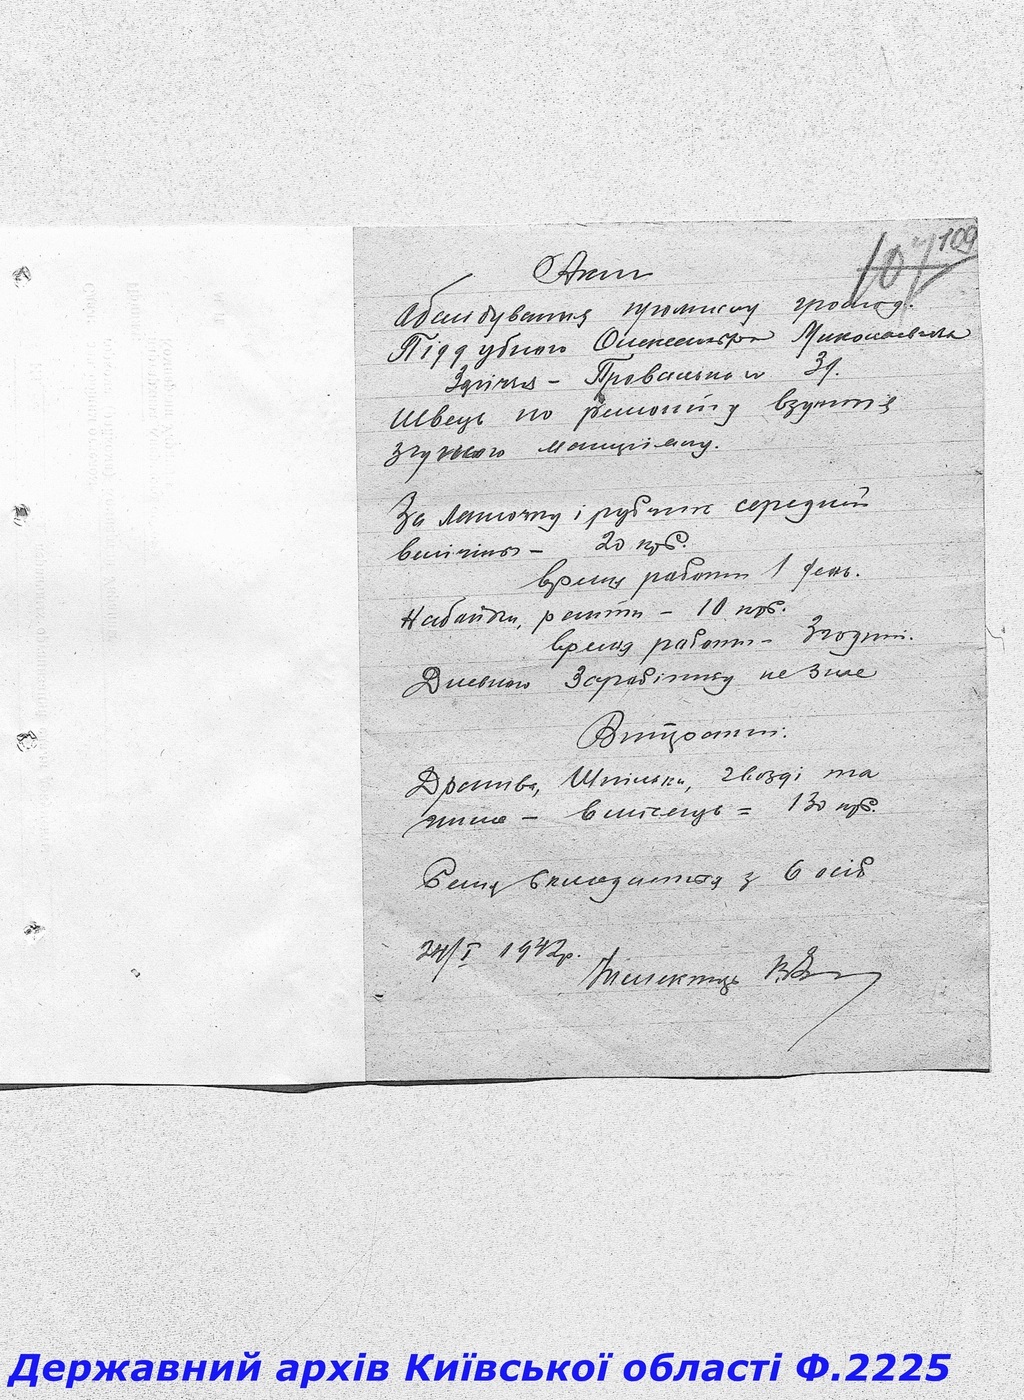 107 109
Акт
Абслідування промислу громад.
Піддубного Олександра Миколаевича
Здрічья - Провального 3д.
Швець по ремонту взуття
з чужого матеріалу.
За латочку і рубчик середній
велічіни - 20 крб.
время работи 1 день.
Набойки, ранти - 10 крб.
время работи - 3 годині.
Дневного Заробітку не знае
Витрати:
Дратва, Шпільки, гвозді та
інше - вмісяць = 130 крб.
Семя складаться з 6 осіб
24/I 1942р.
Державний архів Київської області Ф.2225